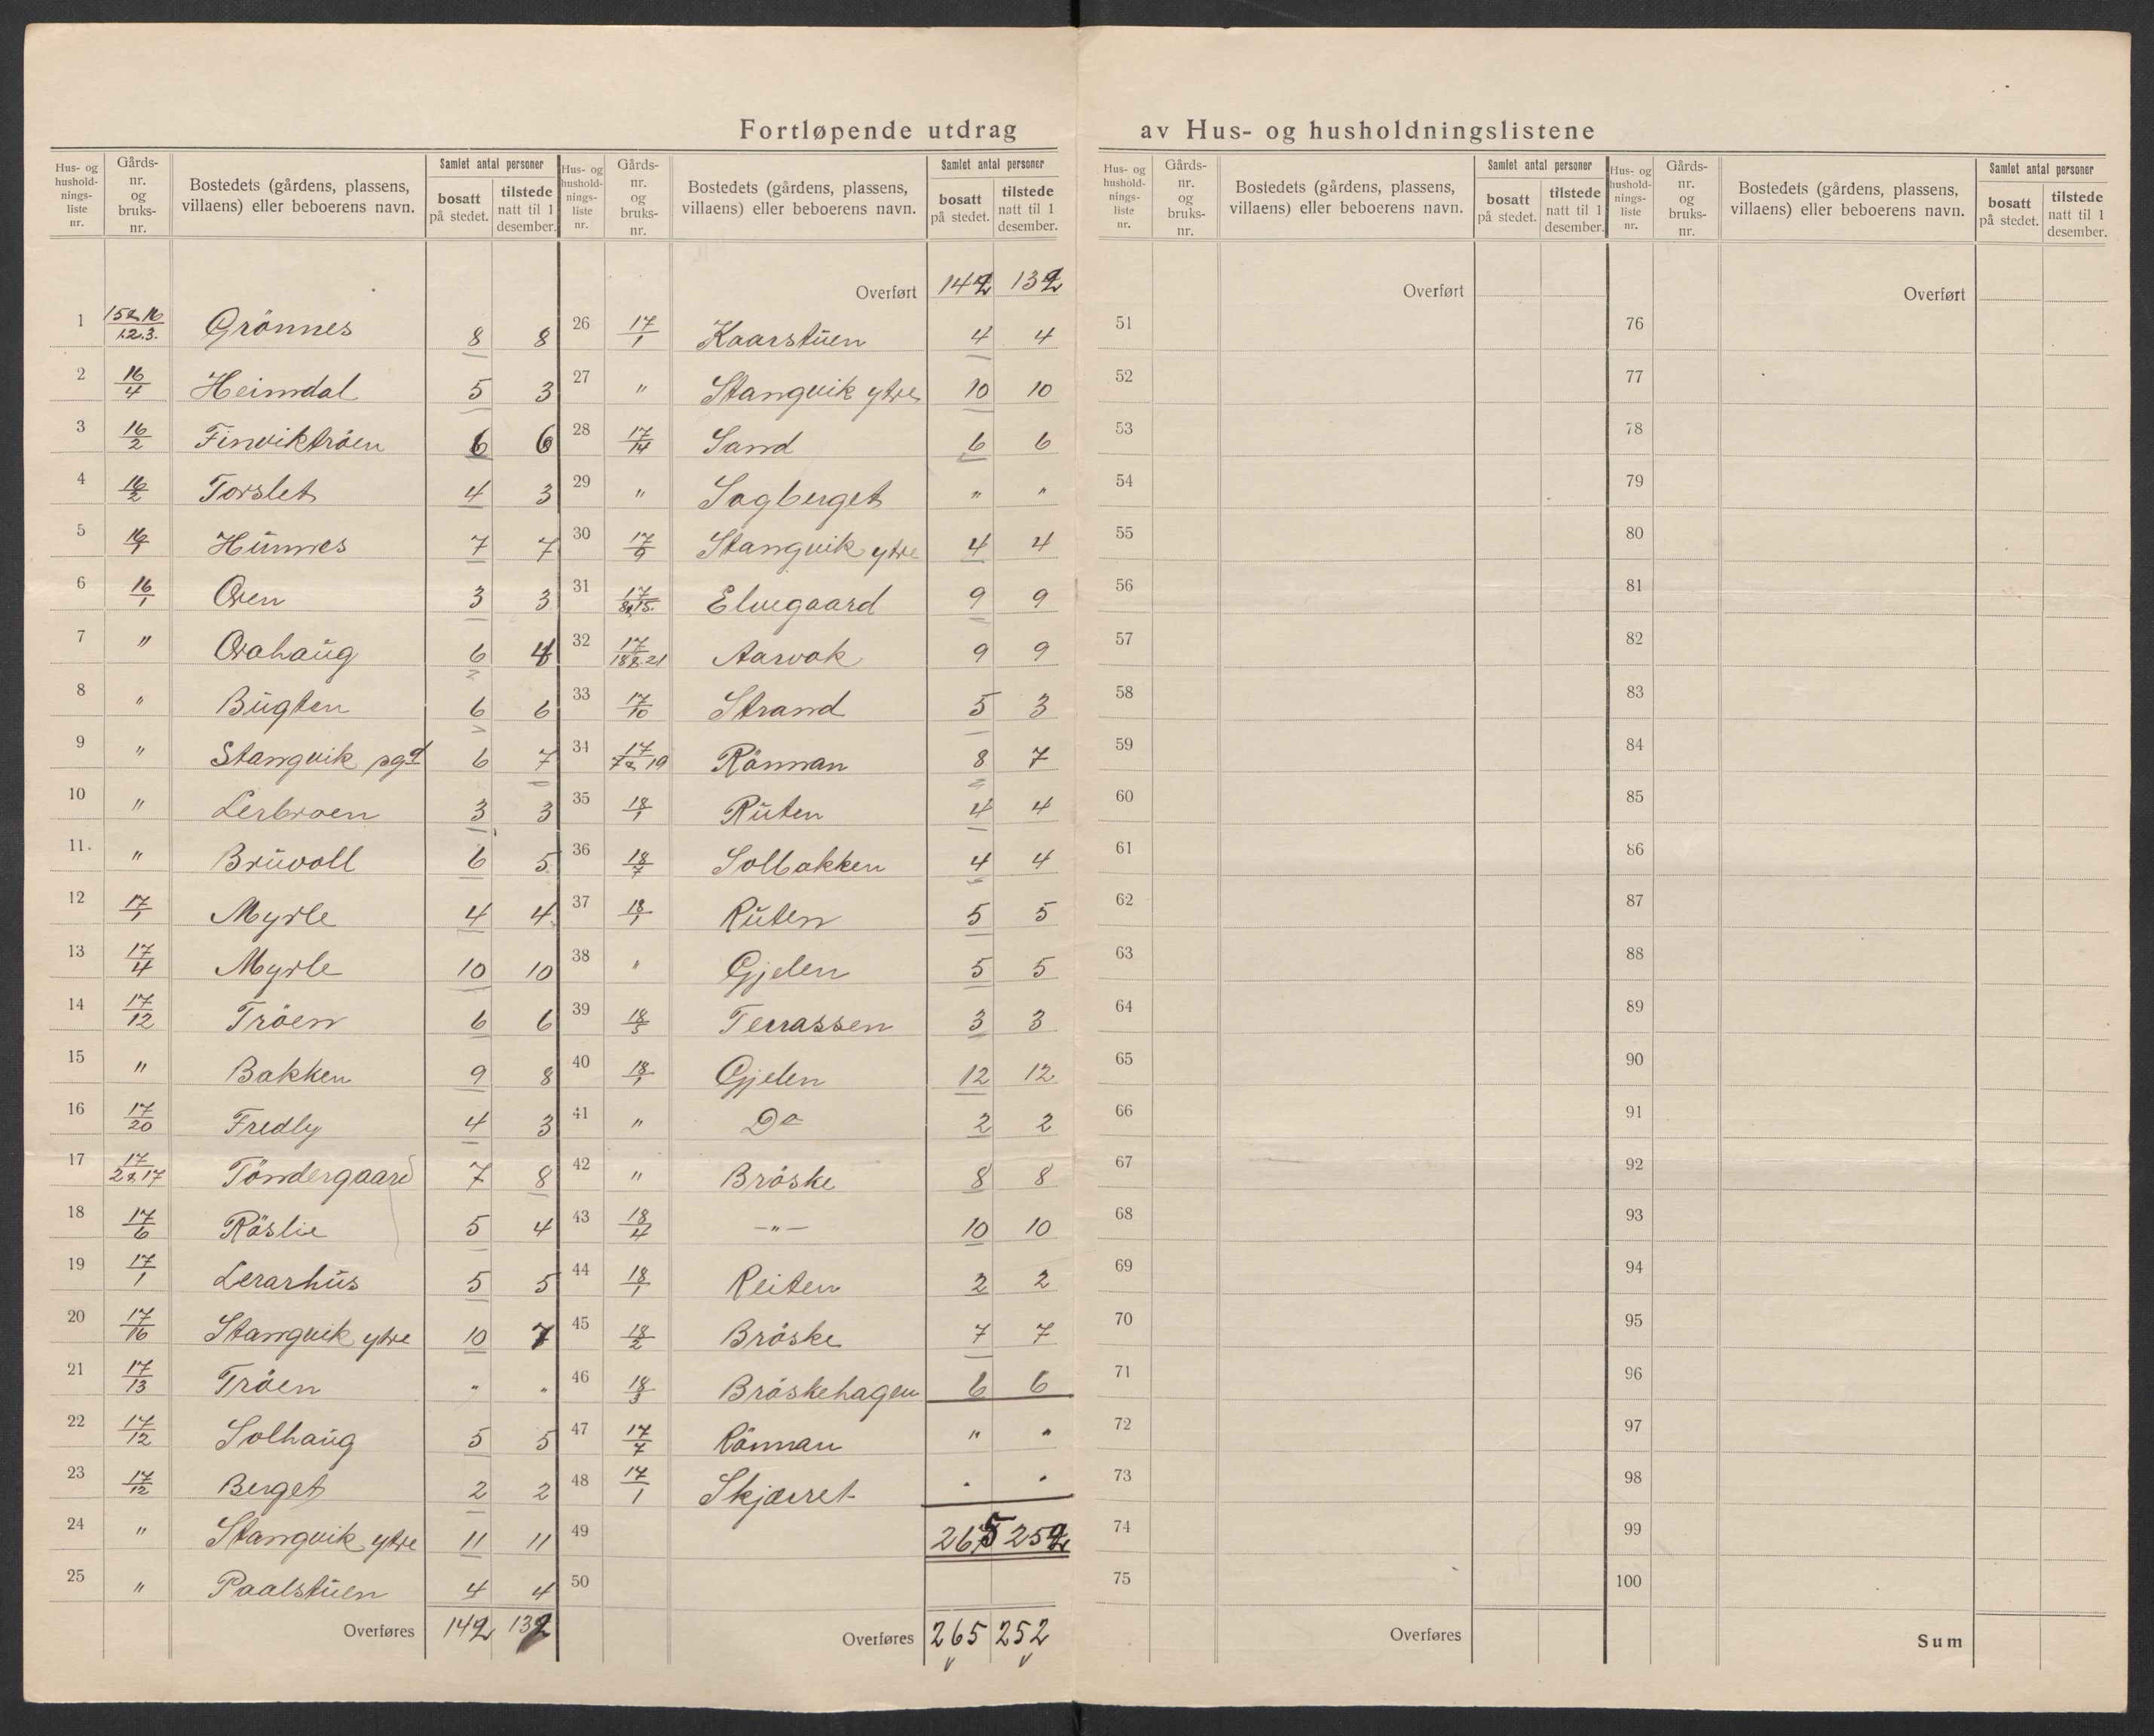 Fortløpende utdrag av Hus- og husholdningslistene
Hus- og husholdningsliste nr. | Gårds-nr. og bruks-nr. | Bostedets (gårdens, plassens, villaens) eller beboerens navn. | Samlet antal personer | bosatt på stedet. | tilstede natt til 1 desember.
1 | 15 & 16/1.2.3. | Grönnes | 8 | 8
2 | 16/4 | Heimdal | 5 | 3
3 | 16/2 | Finviktröen | 6 | 6
4 | 16/2 | Torslet | 4 | 3
5 | 16/1 | Hünnes | 7 | 7
6 | 16/1 | Øren | 3 | 3
7 | " | Ørahaüg | 6 | 4
8 | " | Bügten | 6 | 6
9 | " | Stangvik pgd | 6 | 7
10 | " | Lerbroen | 3 | 3
11. | " | Brüvoll | 6 | 5
12 | 17/1 | Myrle | 4 | 4
13 | 17/4 | Myrle | 10 | 10
14 | 17/12 | Tröen | 6 | 6
15 | " | Bakken | 9 | 8
16 | 17/20 | Fredly | 4 | 3
17 | 17/2 & 17 | Töndergaard | 7 | 8
18 | 17/6 | Röslie | 5 | 4
19 | 17/1 | Lerarhüs | 5 | 5
20 | 17/16 | Stangvik ytre | 10 | 7
21 | 17/13 | Tröen | " | "
22 | 17/12 | Solhaüg | 5 | 5
23 | 17/12 | Berget | 2 | 2
24 | " | Stangvik ytre | 11 | 11
25 | " | Paalstüen | 4 | 4
Overføres 142 132
Hus- og husholdningsliste nr. | Gårds-nr. og bruks-nr. | Bostedets (gårdens, plassens, villaens) eller beboerens navn. | Samlet antal personer | bosatt på stedet. | tilstede natt til 1 desember.
Overført 142 132
26 | 17/1 | Kaarstüen | 4 | 4
27 | " | Stangvik ytre | 10 | 10
28 | 17/14 | Sand | 6 | 6
29 | " | Sagberget | " | "
30 | 17/9 | Stangvik ytre | 4 | 4
31 | 17/8 & 15. | Elvegaard | 9 | 9
32 | 17/18 & 21 | Aarvak | 9 | 9
33 | 17/10 | Strand | 5 | 3
34 | 17/7 & 19 | Rönnan | 8 | 7
35 | 18/1 | Rüten | 4 | 4
36 | 18/7 | Solbakken | 4 | 4
37 | 18/1 | Rüten | 5 | 5
38 | " | Gjelen | 5 | 5
39 | 18/5 | Terrassen | 3 | 3
40 | 18/1 | Gjelen | 12 | 12
41 | " | Do | 2 | 2
42 | " | Bröske | 8 | 8
43 | 18/4 | —"— | 10 | 10
44 | 18/1 | Reiten | 2 | 2
45 | 18/2 | Bröske | 7 | 7
46 | 18/3 | Bröskehagen | 6 | 6
47 | 17/7 | Rönnan | " | "
48 | 17/1 | Skjærret | " | "
49 | 265 | 252
50
Overføres 265 252
Hus- og husholdningsliste nr. | Gårds-nr. og bruks-nr. | Bostedets (gårdens, plassens, villaens) eller beboerens navn. | Samlet antal personer | bosatt på stedet. | tilstede natt til 1 desember.
Overført
51
52
53
54
55
56
57
58
59
60
61
62
63
64
65
66
67
68
69
70
71
72
73
74
75
Overføres
Hus- og husholdningsliste nr. | Gårds-nr. og bruks-nr. | Bostedets (gårdens, plassens, villaens) eller beboerens navn. | Samlet antal personer | bosatt på stedet. | tilstede natt til 1 desember.
Overført
76
77
78
79
80
81
82
83
84
85
86
87
88
89
90
91
92
93
94
95
96
97
98
99
100
Sum